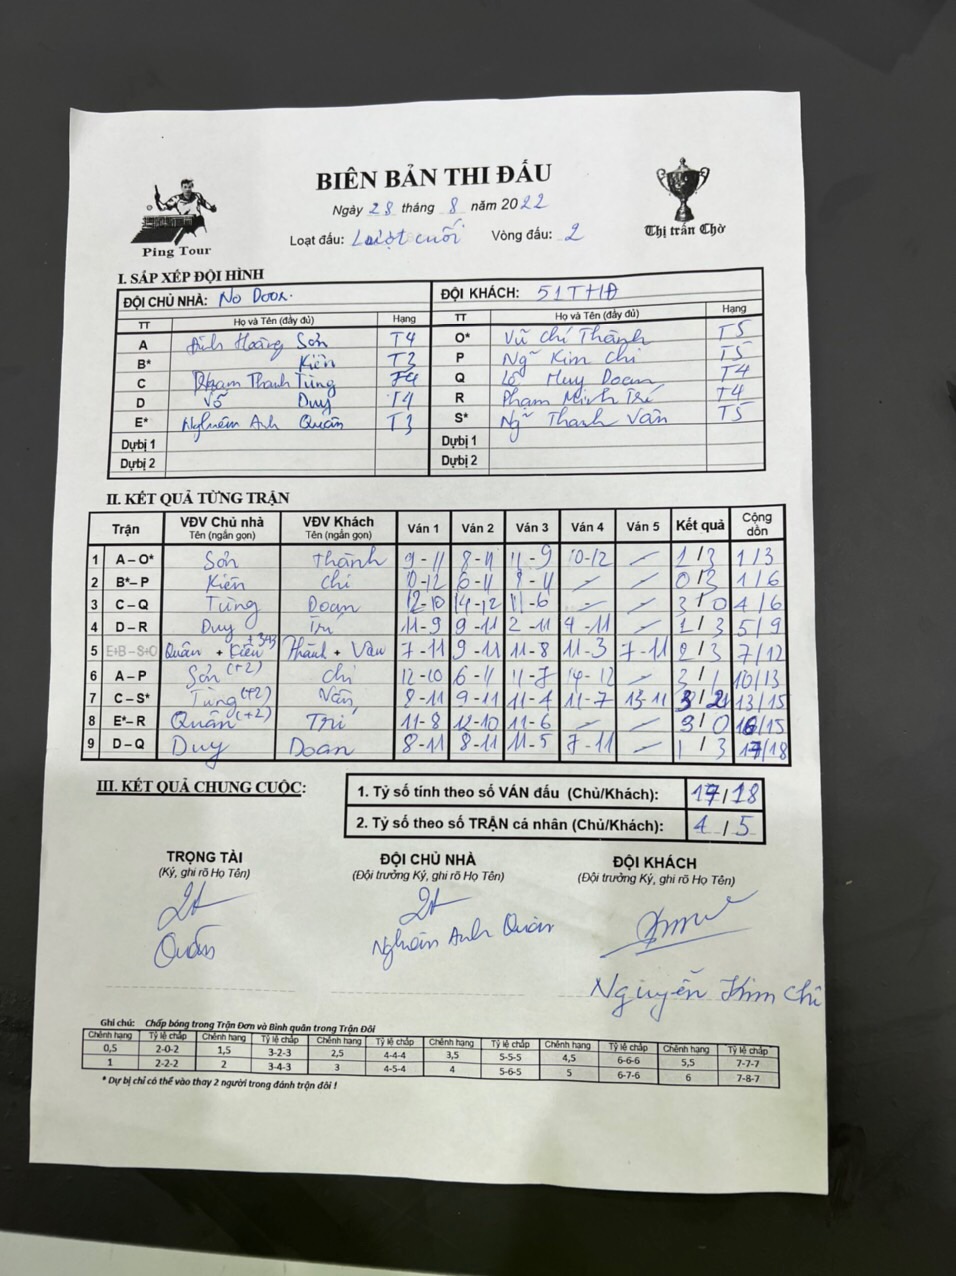 BIÊN BẢN THI ĐẤU
Ngày 28 tháng 8 năm 2022
Loạt đấu: Lượt cuối Vòng đấu: 2
Ping Tour
Thị trấn Chờ
I. SẮP XẾP ĐỘI HÌNH
ĐỘI CHỦ NHÀ: No Door. ĐỘI KHÁCH: 51THĐ
TT Họ và Tên (đầy đủ) Hạng TT Họ và Tên (đầy đủ) Hạng
A Đinh Hoàng Sơn T4 O* Vũ Chí Thành T5
B* Kiên T3 P Ngũ Kim Chi T5
C Phạm Thanh Tùng T4 Q Huy Doan T4
D Võ Duy T4 R Phạm Minh Trí T4
E* Nghiêm Anh Quân T3 S* Ngũ Thanh Vân T5
Dự bị 1 Dự bị 1
Dự bị 2 Dự bị 2
II. KẾT QUẢ TỪNG TRẬN
Trận VĐV Chủ nhà Tên (ngắn gọn) VĐV Khách Tên (ngắn gọn) Ván 1 Ván 2 Ván 3 Ván 4 Ván 5 Kết quả Cộng dồn
1 A – O* Sơn Thành 9-11 8-11 11-9 10-12 – 1/3 1/3
2 B* – P Kiên Chi 10-12 6-11 9-11 – – 0/3 1/6
3 C – Q Tùng Doan 12-10 14-12 11-6 – – 3/0 4/6
4 D – R Duy Trí 11-9 9-11 2-11 4-11 – 1/3 5/9
5 E+B – S+O Quân + Kiên 343 Thành + Vân 7-11 9-11 11-8 11-3 7-11 2/3 7/12
6 A – P Sơn (+2) Chi 12-10 6-11 11-7 14-12 – 3/1 10/13
7 C – S* Tùng (+2) Vân 8-11 9-11 11-4 11-7 13-11 3/2 13/15
8 E* – R Quân (+2) Trí 11-8 12-10 11-6 – – 3/0 16/15
9 D – Q Duy Doan 8-11 8-11 11-5 7-11 – 1/3 17/18
III. KẾT QUẢ CHUNG CUỘC:
1. Tỷ số tính theo số VÁN đấu (Chủ/Khách): 17/18
2. Tỷ số theo số TRẬN cá nhân (Chủ/Khách): 4/5
TRỌNG TÀI ĐỘI CHỦ NHÀ ĐỘI KHÁCH
(Ký, ghi rõ Họ Tên) (Đội trưởng Ký, ghi rõ Họ Tên) (Đội trưởng Ký, ghi rõ Họ Tên)
Quân Nghiêm Anh Quân Nguyễn Kim Chi
Ghi chú: Chấp bóng trong Trận Đơn và Bình quân trong Trận Đôi
Chênh hạng Tỷ lệ chấp Chênh hạng Tỷ lệ chấp Chênh hạng Tỷ lệ chấp Chênh hạng Tỷ lệ chấp Chênh hạng Tỷ lệ chấp Chênh hạng Tỷ lệ chấp
0,5 2-0-2 1,5 3-2-3 2,5 4-4-4 3,5 5-5-5 4,5 6-6-6 5,5 7-7-7
1 2-2-2 2 3-4-3 3 4-5-4 4 5-6-5 5 6-7-6 6 7-8-7
* Dự bị chỉ có thể vào thay 2 người trong đánh trận đôi !